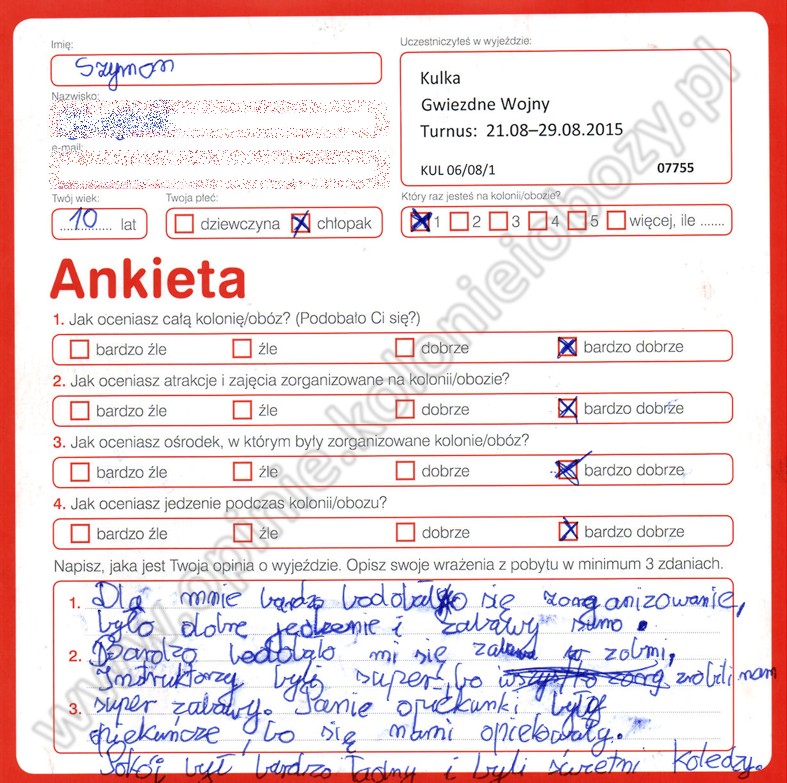 Imię:
Szymon
Nazwisko:
e-mail:
Twój wiek:
10 lat
Twoja płeć:
dziewczyna chłopak
Uczestniczyłeś w wyjeździe:
Kulka
Gwiezdne Wojny
Turnus: 21.08–29.08.2015
KUL 06/08/1 07755
Który raz jesteś na kolonii/obozie?
1 2 3 4 5 więcej, ile .......
Ankieta
1. Jak oceniasz całą kolonię/obóz? (Podobało Ci się?)
bardzo źle źle dobrze bardzo dobrze
2. Jak oceniasz atrakcje i zajęcia zorganizowane na kolonii/obozie?
bardzo źle źle dobrze bardzo dobrze
3. Jak oceniasz ośrodek, w którym były zorganizowane kolonie/obóz?
bardzo źle źle dobrze bardzo dobrze
4. Jak oceniasz jedzenie podczas kolonii/obozu?
bardzo źle źle dobrze bardzo dobrze
Napisz, jaka jest Twoja opinia o wyjeździe. Opisz swoje wrażenia z pobytu w minimum 3 zdaniach.
1. Dla mnie bardzo bodobało się zorganizowanie,
było dobre jedzenie i zabawy sumo.
2. Bardzo bodobało mi się
Instruktorzy byli super, bo zrobili nam
3. super zabawy. Panie opiekunki były
opiekuńcze, bo się nami opiekowały.
Pokój był bardzo ładny i byli świetni koledzy.
www.opinie.kolonieiobozy.pl